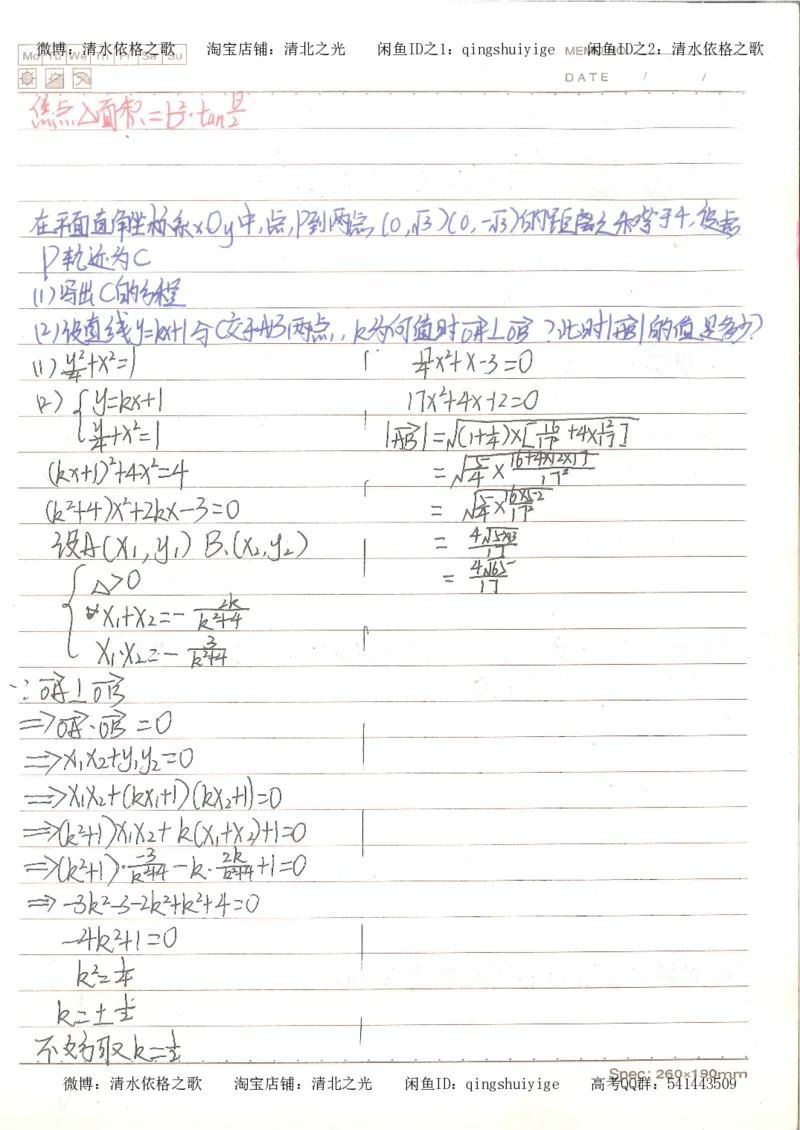 微博：清水依格之歌 淘宝店铺：清北之光 闲鱼ID之1：qingshuiyige 闲鱼ID之2：清水依格之歌
Mo Tu We Th Fr Sa Su
DATE / /
焦点△面积=b²·tan θ/2
在平面直角坐标系xOy中,点P到两点(0,√3)(0,-√3)的距离之和等于4,设点
P轨迹为C
(1)写出C的方程
(2)设直线y=kx+1与C交于AB两点,k为何值时OA⊥OB?此时|AB|的值是多少?
(1) y²/4+x²=1
(2) { y=kx+1
y²/4+x²=1
(kx+1)²+4x²=4
(k²+4)x²+2kx-3=0
设A(x₁,y₁) B(x₂,y₂)
{ △>0
x₁+x₂=- 2k/(k²+4)
x₁·x₂=- 3/(k²+4)
∵OA⊥OB
⇒OA·OB=0
⇒x₁x₂+y₁y₂=0
⇒x₁x₂+(kx₁+1)(kx₂+1)=0
⇒(k²+1)x₁x₂+k(x₁+x₂)+1=0
⇒(k²+1)·-3/(k²+4)-k·2k/(k²+4)+1=0
⇒-3k²-3-2k²+k²+4=0
-4k²+1=0
k²=1/4
k=±1/2
不妨取k=1/2
17/4x²+x-3=0
17x²+4x-12=0
|AB|=√((1+1/4)×[16/17²+4×12/17])
=√(5/4×(16+4×12×17)/17²)
=√(5/4×16×52/17²)
=4√(5×13)/17
=4√65/17
Spec: 260×190mm
微博：清水依格之歌 淘宝店铺：清北之光 闲鱼ID：qingshuiyige 高考QQ群：541443509